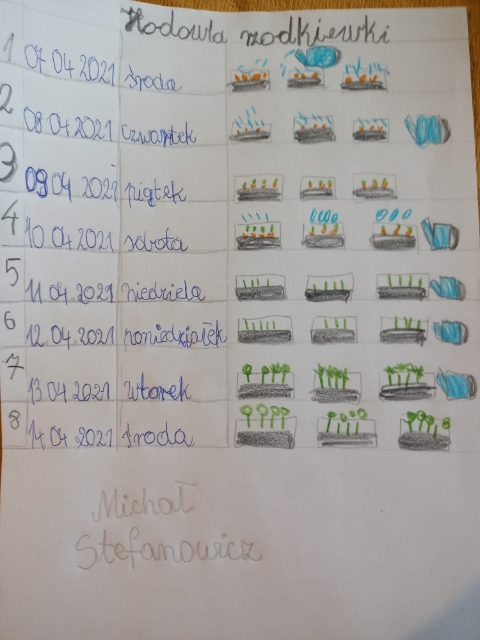 Hodowla rzodkiewki
1 07 04 2021 środa
2 08 04 2021 czwartek
3 09 04 2021 piątek
4 10 04 2021 sobota
5 11 04 2021 niedziela
6 12.04.2021 poniedziałek
7 13 04 2021 wtorek
8 14 04 2021 środa
Michał
Stefanowicz